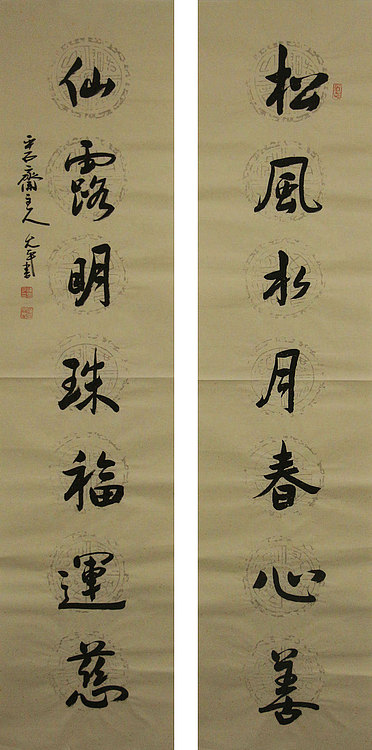 松風水月春心善
仙露明珠福運慈
齋主人